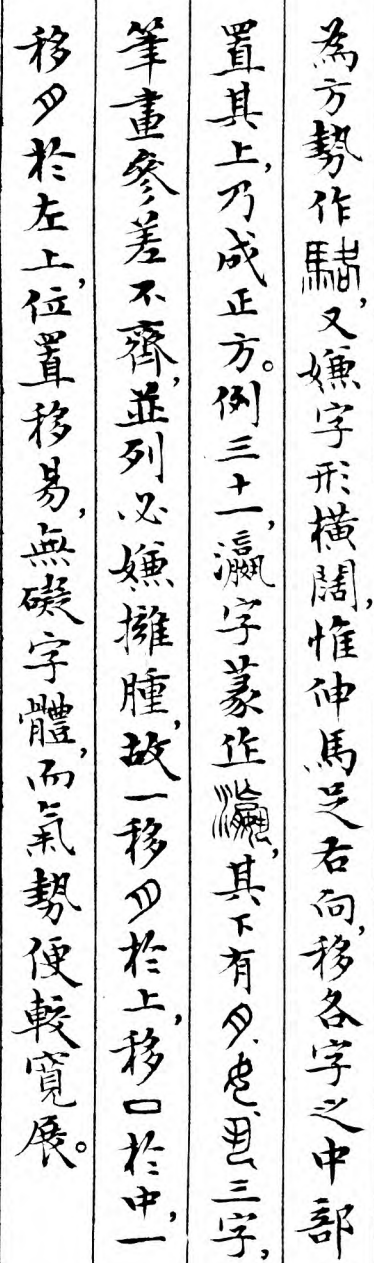 為方勢作，又嫌字形橫闊，惟伸馬足右向，移各字之中部
置其上，乃成正方。例三十一，瀛字篆作，其下有三字，
筆畫參差不齊，並列必嫌擁腫，故一移於上，移口於中，一
移於左上，位置移易，無礙字體，而氣勢便較寬展。